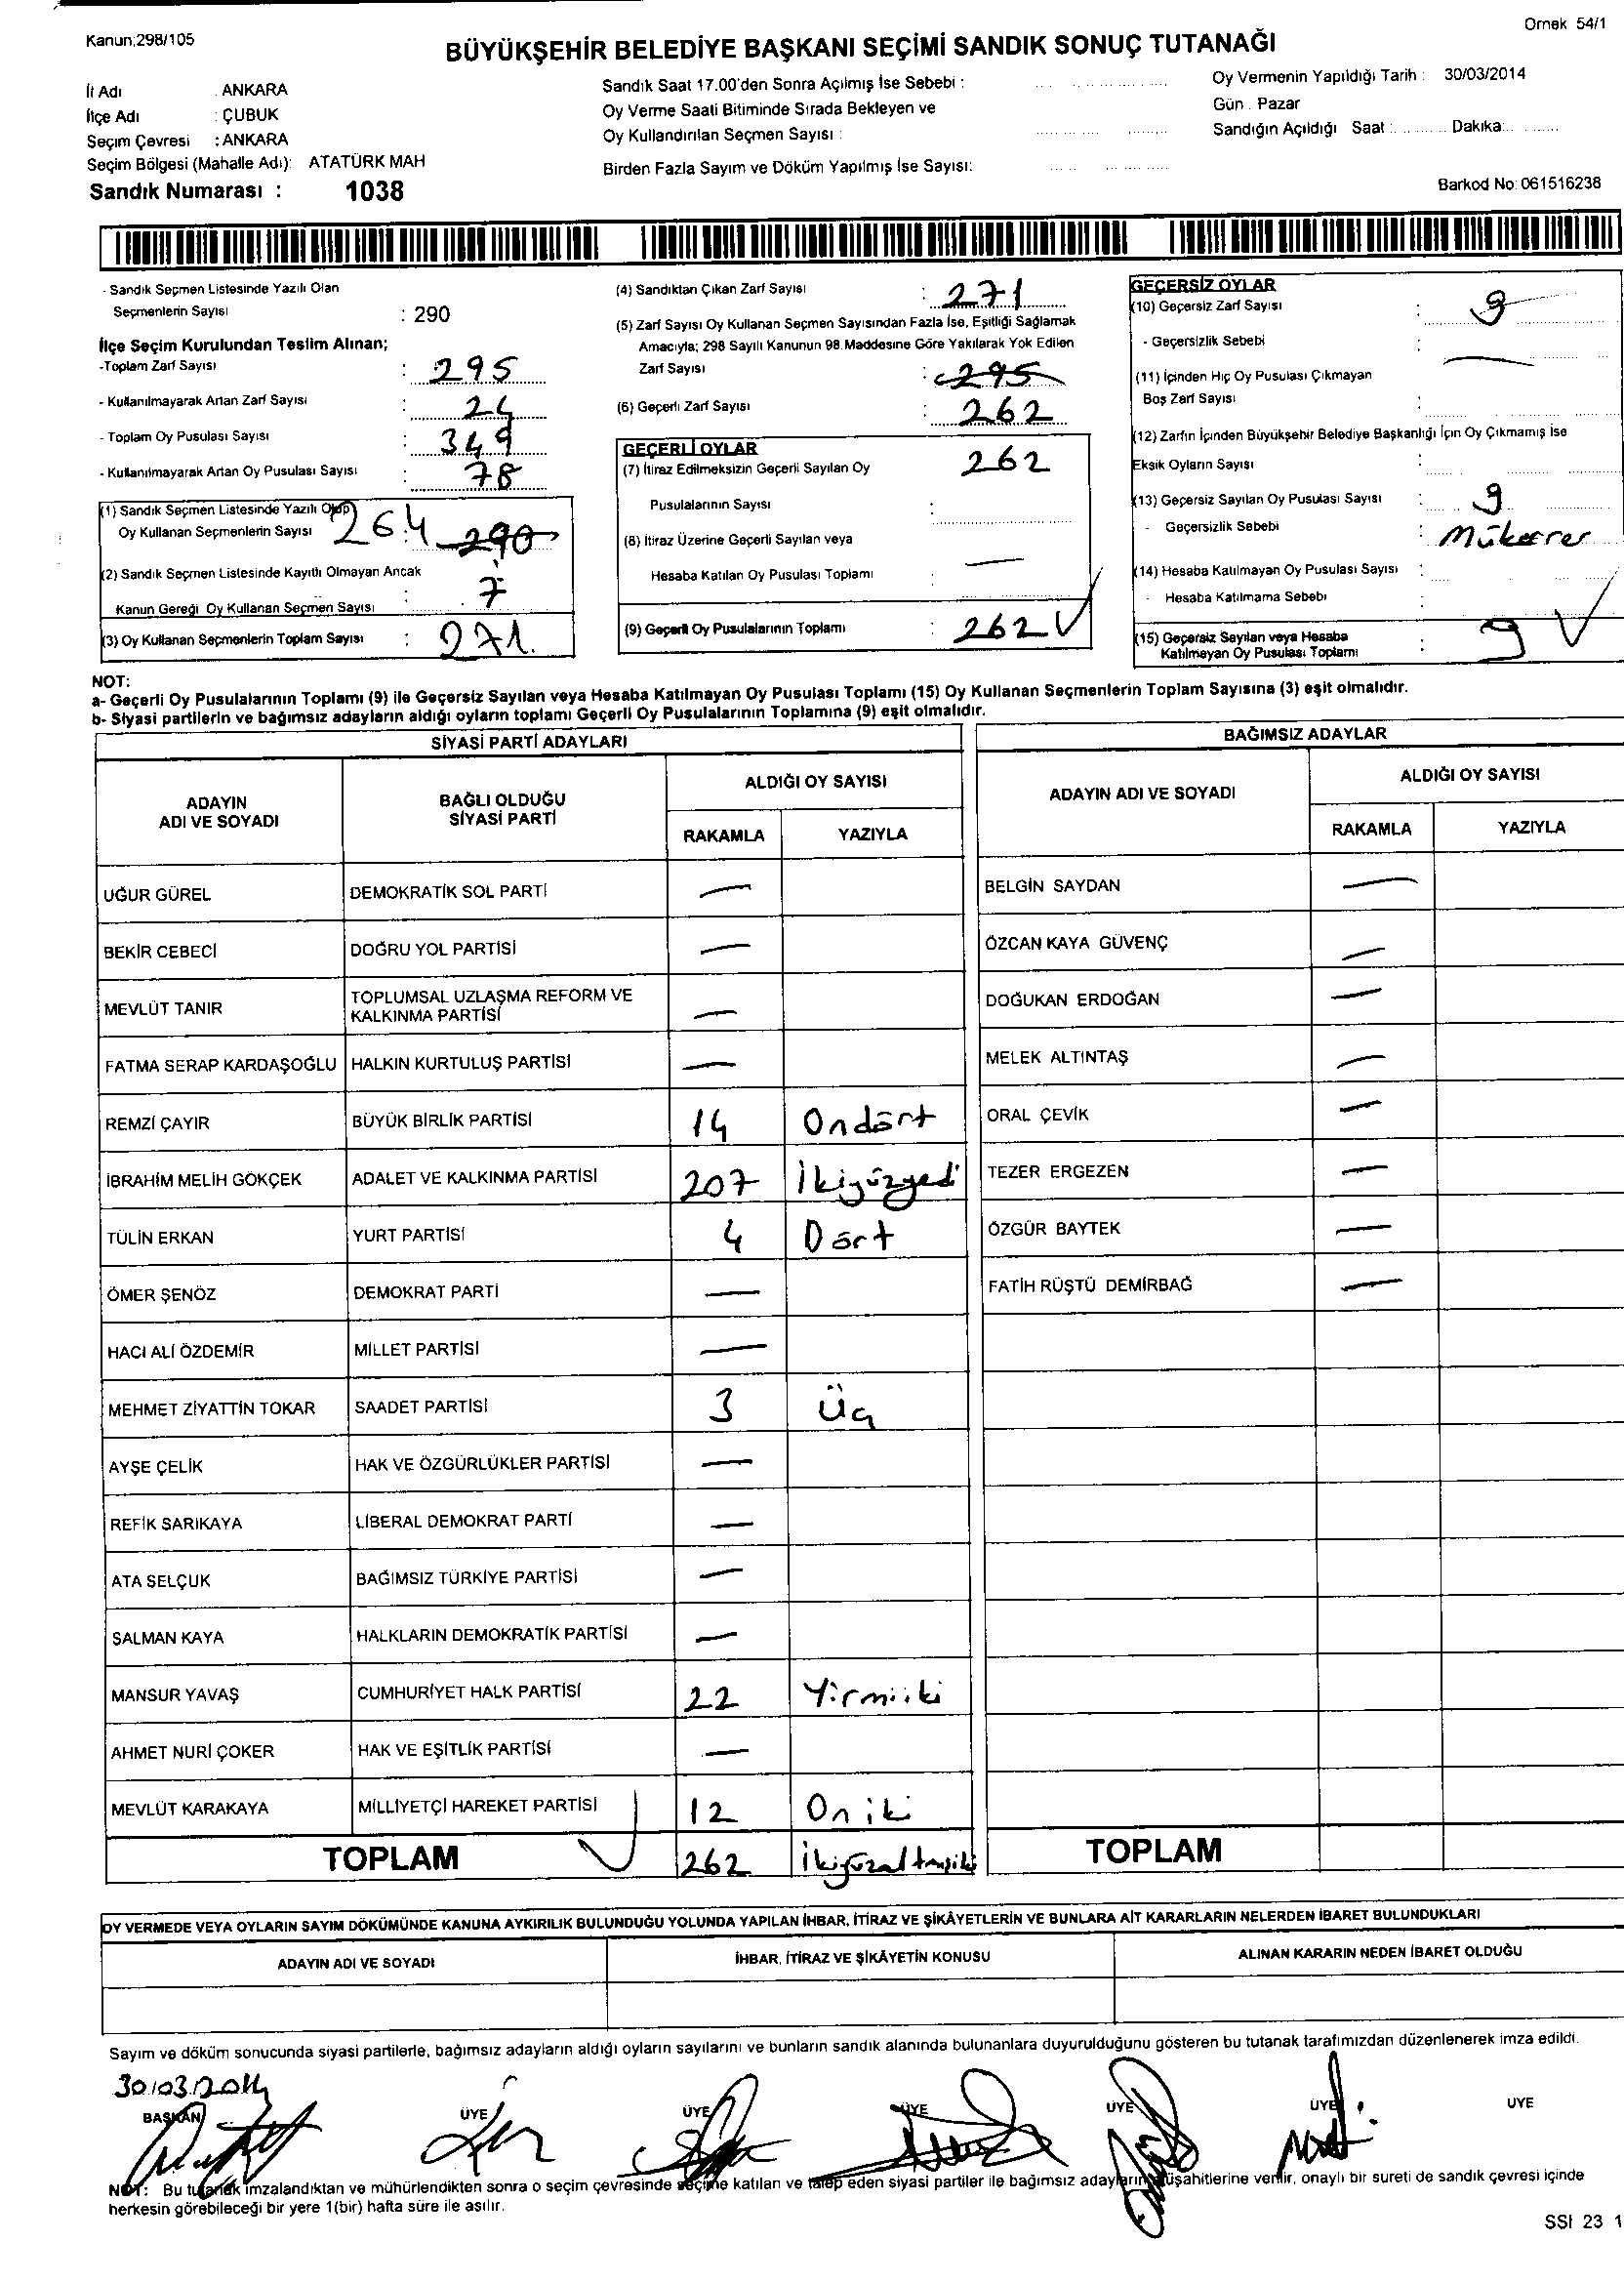 Kanun;298/105
Örnek 54/1
BÜYÜKŞEHİR BELEDİYE BAŞKANI SEÇİMİ SANDIK SONUÇ TUTANAĞI
İl Adı : ANKARA
İlçe Adı : ÇUBUK
Seçim Çevresi : ANKARA
Seçim Bölgesi (Mahalle Adı): ATATÜRK MAH
Sandık Numarası : 1038
Sandık Saat 17.00'den Sonra Açılmış İse Sebebi :
Oy Verme Saati Bitiminde Sırada Bekleyen ve
Oy Kullandırılan Seçmen Sayısı :
Birden Fazla Sayım ve Döküm Yapılmış İse Sayısı:
Oy Vermenin Yapıldığı Tarih : 30/03/2014
Gün : Pazar
Sandığın Açıldığı Saat : Dakika:
Barkod No: 061516238
- Sandık Seçmen Listesinde Yazılı Olan
Seçmenlerin Sayısı : 290
İlçe Seçim Kurulundan Teslim Alınan;
-Toplam Zarf Sayısı : 295
- Kullanılmayarak Artan Zarf Sayısı : 24
- Toplam Oy Pusulası Sayısı : 349
- Kullanılmayarak Artan Oy Pusulası Sayısı : 78
(1) Sandık Seçmen Listesinde Yazılı Olup
Oy Kullanan Seçmenlerin Sayısı 264 290
(2) Sandık Seçmen Listesinde Kayıtlı Olmayan Ancak
Kanun Gereği Oy Kullanan Seçmen Sayısı : 7
(3) Oy Kullanan Seçmenlerin Toplam Sayısı : 271
(4) Sandıktan Çıkan Zarf Sayısı : 271
(5) Zarf Sayısı Oy Kullanan Seçmen Sayısından Fazla İse, Eşitliği Sağlamak
Amacıyla; 298 Sayılı Kanunun 98.Maddesine Göre Yakılarak Yok Edilen
Zarf Sayısı : 295
(6) Geçerli Zarf Sayısı : 262
GEÇERLİ OYLAR
(7) İtiraz Edilmeksizin Geçerli Sayılan Oy 262
Pusulalarının Sayısı :
(8) İtiraz Üzerine Geçerli Sayılan veya
Hesaba Katılan Oy Pusulası Toplamı : —
(9) Geçerli Oy Pusulalarının Toplamı : 262
GEÇERSİZ OYLAR
(10) Geçersiz Zarf Sayısı : 9
- Geçersizlik Sebebi : —
(11) İçinden Hiç Oy Pusulası Çıkmayan
Boş Zarf Sayısı :
(12) Zarfın İçinden Büyükşehir Belediye Başkanlığı İçin Oy Çıkmamış İse
Eksik Oyların Sayısı :
(13) Geçersiz Sayılan Oy Pusulası Sayısı : 9
- Geçersizlik Sebebi : Mükerrer
(14) Hesaba Katılmayan Oy Pusulası Sayısı :
- Hesaba Katılmama Sebebi :
(15) Geçersiz Sayılan veya Hesaba
Katılmayan Oy Pusulası Toplamı : 9
NOT:
a- Geçerli Oy Pusulalarının Toplamı (9) ile Geçersiz Sayılan veya Hesaba Katılmayan Oy Pusulası Toplamı (15) Oy Kullanan Seçmenlerin Toplam Sayısına (3) eşit olmalıdır.
b- Siyasi partilerin ve bağımsız adayların aldığı oyların toplamı Geçerli Oy Pusulalarının Toplamına (9) eşit olmalıdır.
SİYASİ PARTİ ADAYLARI
ADAYIN ADI VE SOYADI
BAĞLI OLDUĞU SİYASİ PARTİ
ALDIĞI OY SAYISI
RAKAMLA YAZIYLA
UĞUR GÜREL DEMOKRATİK SOL PARTİ —
BEKİR CEBECİ DOĞRU YOL PARTİSİ —
MEVLÜT TANIR TOPLUMSAL UZLAŞMA REFORM VE KALKINMA PARTİSİ —
FATMA SERAP KARDAŞOĞLU HALKIN KURTULUŞ PARTİSİ —
REMZİ ÇAYIR BÜYÜK BİRLİK PARTİSİ 14 Ondört
İBRAHİM MELİH GÖKÇEK ADALET VE KALKINMA PARTİSİ 207 İkiyüzyedi
TÜLİN ERKAN YURT PARTİSİ 4 Dört
ÖMER ŞENÖZ DEMOKRAT PARTİ —
HACI ALİ ÖZDEMİR MİLLET PARTİSİ —
MEHMET ZİYATTİN TOKAR SAADET PARTİSİ 3 Üç
AYŞE ÇELİK HAK VE ÖZGÜRLÜKLER PARTİSİ —
REFİK SARIKAYA LİBERAL DEMOKRAT PARTİ —
ATA SELÇUK BAĞIMSIZ TÜRKİYE PARTİSİ —
SALMAN KAYA HALKLARIN DEMOKRATİK PARTİSİ —
MANSUR YAVAŞ CUMHURİYET HALK PARTİSİ 22 Yirmiiki
AHMET NURİ ÇOKER HAK VE EŞİTLİK PARTİSİ —
MEVLÜT KARAKAYA MİLLİYETÇİ HAREKET PARTİSİ 12 Oniki
TOPLAM 262 İkiyüzaltmışiki
BAĞIMSIZ ADAYLAR
ADAYIN ADI VE SOYADI
ALDIĞI OY SAYISI
RAKAMLA YAZIYLA
BELGİN SAYDAN —
ÖZCAN KAYA GÜVENÇ —
DOĞUKAN ERDOĞAN —
MELEK ALTINTAŞ —
ORAL ÇEVİK —
TEZER ERGEZEN —
ÖZGÜR BAYTEK —
FATİH RÜŞTÜ DEMİRBAĞ —
TOPLAM
OY VERMEDE VEYA OYLARIN SAYIM DÖKÜMÜNDE KANUNA AYKIRILIK BULUNDUĞU YOLUNDA YAPILAN İHBAR, İTİRAZ VE ŞİKÂYETLERİN VE BUNLARA AİT KARARLARIN NELERDEN İBARET BULUNDUKLARI
ADAYIN ADI VE SOYADI İHBAR, İTİRAZ VE ŞİKÂYETİN KONUSU ALINAN KARARIN NEDEN İBARET OLDUĞU
Sayım ve döküm sonucunda siyasi partilerle, bağımsız adayların aldığı oyların sayılarını ve bunların sandık alanında bulunanlara duyurulduğunu gösteren bu tutanak tarafımızdan düzenlenerek imza edildi.
30/03/2014
BAŞKAN ÜYE ÜYE ÜYE ÜYE ÜYE ÜYE
NOT: Bu tutanak imzalandıktan ve mühürlendikten sonra o seçim çevresinde seçime katılan ve talep eden siyasi partiler ile bağımsız adayların müşahitlerine verilir, onaylı bir sureti de sandık çevresi içinde
herkesin görebileceği bir yere 1(bir) hafta süre ile asılır.
SSI 23 1